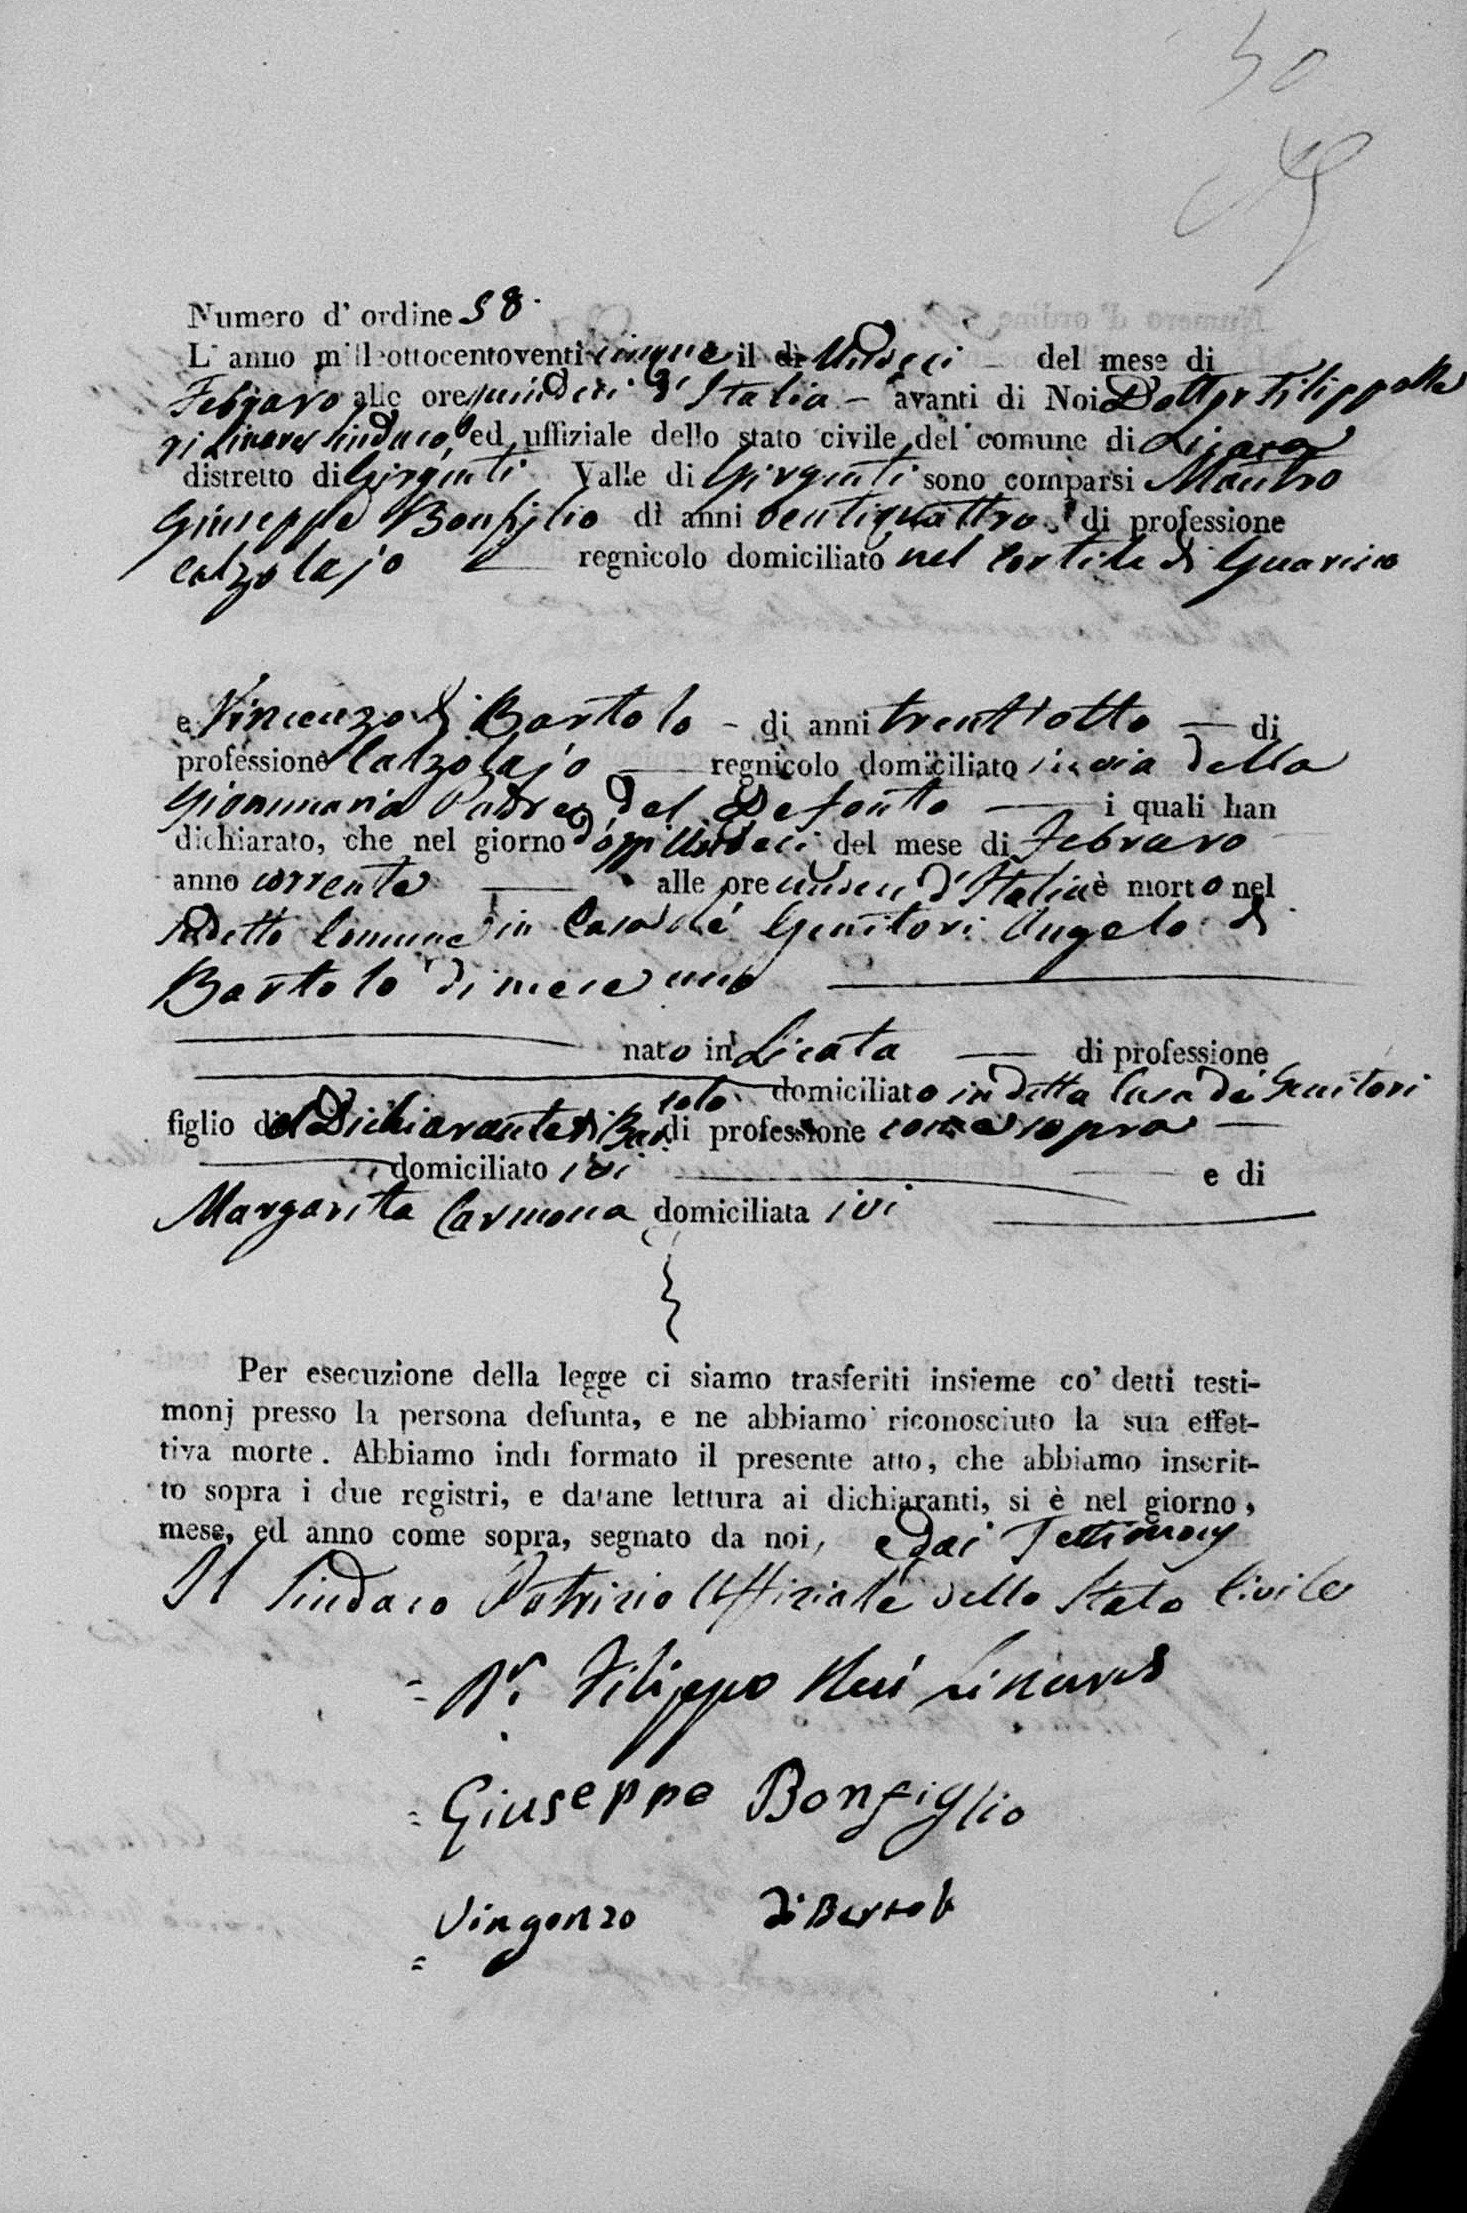 50
Numero d' ordine 58.
L' anno milleottocentoventi cinque il dì Undeci — del mese di
Febraro alle ore quindeci d'Italia — avanti di Noi Dottor Filippo Ne
ri Linares Sindaco ed uffiziale dello stato civile del comune di Licata
distretto di Girgenti Valle di Girgenti sono comparsi Mastro
Giuseppe Bonfiglio di anni ventiquattro di professione
Calzolajo — regnicolo domiciliato nel Cortile di Guarino
e Vincenzo di Bartolo — di anni trent'otto — di
professione Calzolajo — regnicolo domiciliato in via della
Giommaria Padre del Defonto — i quali han
dichiarato, che nel giorno d'oggi Undeci del mese di Febraro
anno corrente — alle ore undeci d'Italia è morto nel
sudetto Comune in Casa de' Genitori Angelo di
Bartolo di mese uno
nato in Licata — di professione
domiciliato in detta Casa de' Genitori
figlio del Dichiarante di Bar tolo di professione come sopra —
domiciliato ivi — e di
Margarita Carmona domiciliata ivi
Per esecuzione della legge ci siamo trasferiti insieme co' detti testi-
monj presso la persona defunta, e ne abbiamo riconosciuto la sua effet-
tiva morte. Abbiamo indi formato il presente atto, che abbiamo inscrit-
to sopra i due registri, e datane lettura ai dichiaranti, si è nel giorno,
mese, ed anno come sopra, segnato da noi, e dai Testimonj
Il Sindaco Patrizio Uffiziale dello Stato Civile
= Dr. Filippo Neri Linares
= Giuseppe Bonfiglio
= Vingenzo di Bartolo